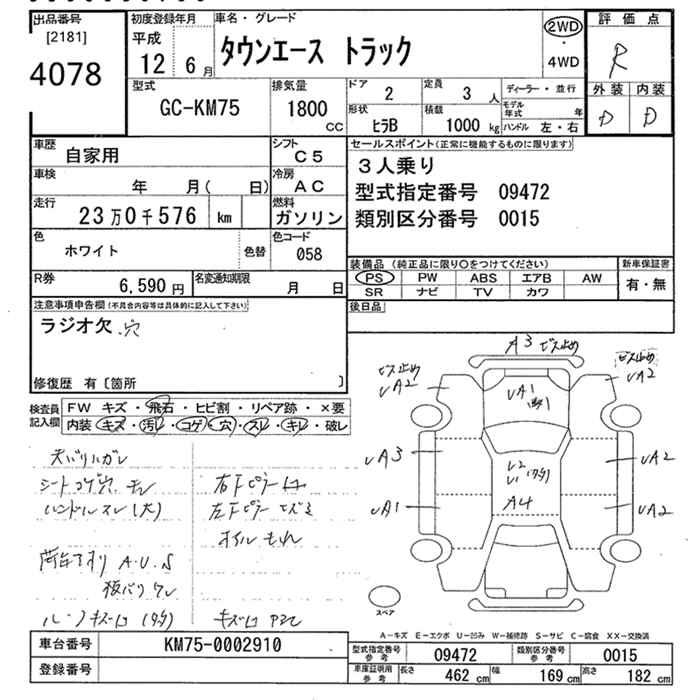 出品番号
[2181]
4078
初度登録年月
平成
12 年 6 月
車名・グレード
タウンエース トラック
2WD
・
4WD
評価点
R
外装 内装
D D
型式
GC-KM75
排気量
1800
CC
ドア
2
定員
3 人
形状
ヒラB
積載
1000 kg
ディーラー・並行
モデル年式 年
ハンドル 左・右
車歴
自家用
シフト
C5
車検
年 月( 日)
冷房
AC
走行
23万0千576 km
燃料
ガソリン
色
ホワイト
色替
色コード
058
R券
6,590円
名変通知期限
月 日
セールスポイント(正常に機能するものに限ります)
3人乗り
型式指定番号 09472
類別区分番号 0015
装備品 (純正品に限り○をつけてください)
PS PW ABS エアB AW
SR ナビ TV カワ
新車保証書
有・無
後日品
注意事項申告欄(不具合内容等は具体的に記入して下さい)
ラジオ欠 穴
修復歴 有〔箇所 〕
検査員記入欄
FW キズ・飛石・ヒビ割・リペア跡・×要
内装 キズ・汚レ・コゲ・穴・スレ・キレ・破レ
天バリハガレ
シートコゲ穴 キレ
ハンドルスレ(大)
A.U.S
A3 ビス止め
ビス止め
UA2
ビス止め
UA2
UA1
UA3
UA2
A4
UA1
UA2
スペア
A-キズ E-エクボ U-凹み W-補修跡 S-サビ C-腐食 XX-交換済
車台番号 KM75-0002910
登録番号
型式指定番号 参考 09472 類別区分番号 参考 0015
車庫証明用 参考 長さ 462 cm 幅 169 cm 高さ 182 cm